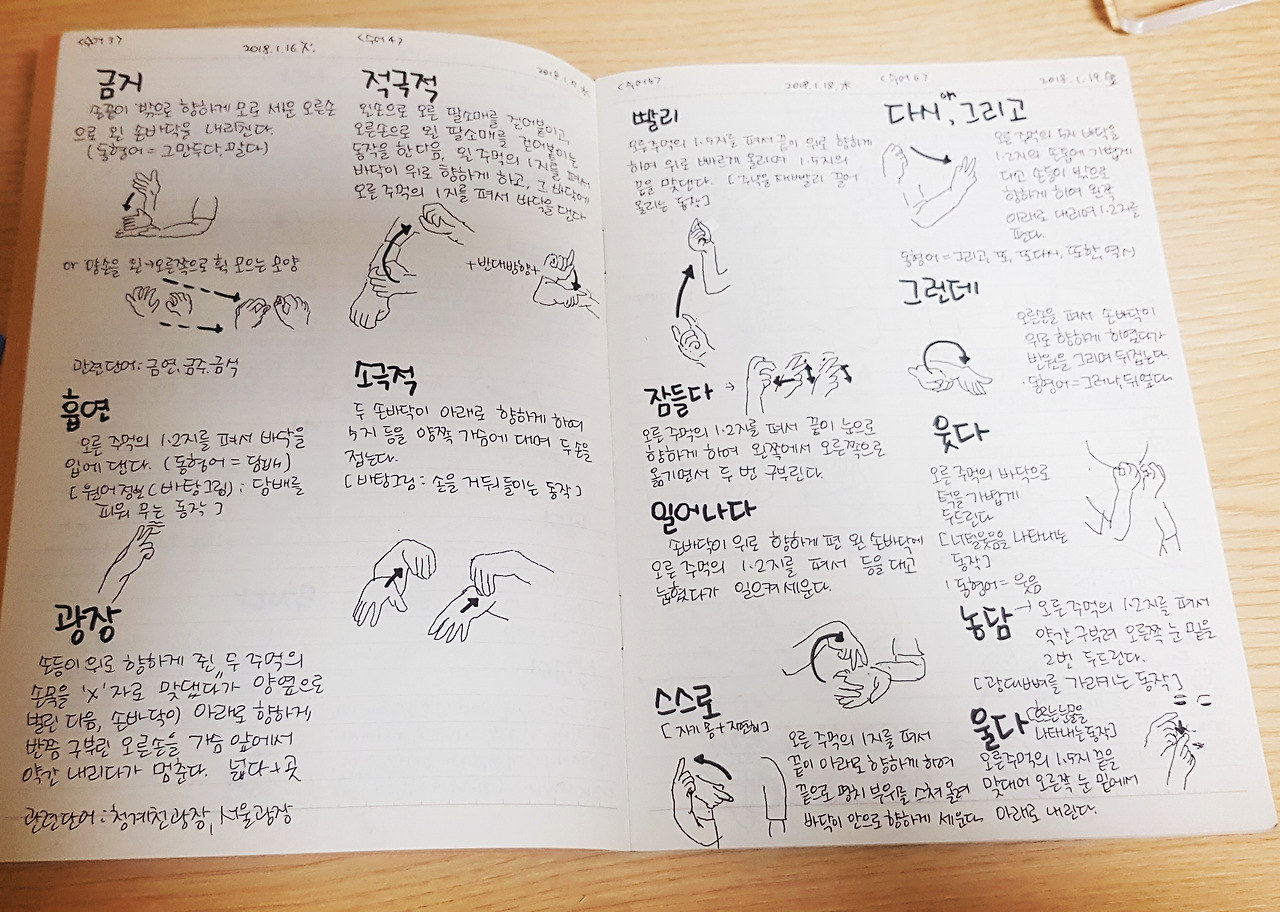 <수어3>
2018.1.16.火.
금지
손끝이 밖으로 향하게 모로 세운 오른손
으로 왼 손바닥을 내리친다.
(동형어 = 그만두다, 말다)
or 양손을 왼→오른쪽으로 휙 모으는 모양
관련단어: 금연, 금주, 금식
흡연
오른 주먹의 1·2지를 펴서 바닥을
입에 댄다. (동형어 = 담배)
[원어정보(바탕그림) : 담배를
피워 무는 동작]
광장
손등이 위로 향하게 쥔 두 주먹의
손목을 'X'자로 맞댔다가 양옆으로
벌린 다음, 손바닥이 아래로 향하게
반쯤 구부린 오른손을 가슴 앞에서
약간 내리다가 멈춘다. 넓다+곳
관련단어: 청계천광장, 서울광장
<수어4>
2018.1.
적극적
왼손으로 오른 팔소매를 걷어붙이고,
오른손으로 왼 팔소매를 걷어붙이는
동작을 한 다음, 왼 주먹의 1지를 펴서
바닥이 위로 향하게 하고, 그 바닥에
오른 주먹의 1지를 펴서 바닥을 댄다
+반대방향+
소극적
두 손바닥이 아래로 향하게 하여
5지 등을 양쪽 가슴에 대며 두 손을
접는다.
[바탕그림: 손을 거둬들이는 동작]
<수어5>
2018.1.18.木
빨리
오른주먹의 1·5지를 펴서 끝이 위로 향하게
하여 위로 빠르게 올리며 1·5지의
끝을 맞댄다. [주낙을 재빨리 끌어
올리는 동작]
잠들다 →
오른 주먹의 1·2지를 펴서 끝이 눈으로
향하게 하여 왼쪽에서 오른쪽으로
옮기면서 두 번 구부린다.
일어나다
손바닥이 위로 향하게 편 왼 손바닥에
오른 주먹의 1·2지를 펴서 등을 대고
눕혔다가 일으켜 세운다.
스스로
[자기 몸+저절로]
오른 주먹의 1지를 펴서
끝이 아래로 향하게 하여
끝으로 명치 부위를 스쳐 올려
바닥이 안으로 향하게 세운다.
<수어6>
2018.1.19.金
다시, 그리고
오른 주먹의 5지 바닥을
1·2지의 손톱에 가볍게
대고 손등이 밖으로
향하게 하여 왼쪽
아래로 내리며 1·2지를
편다.
동형어 = 그리고, 또, 또다시, 또한, 역시
그런데
오른손을 펴서 손바닥이
위로 향하게 하였다가
반원을 그리며 뒤집는다.
·동형어 = 그러나, 뒤엎다.
웃다
오른 주먹의 바닥으로
턱을 가볍게
두드린다
[너털웃음을 나타내는
동작]
·동형어 = 웃음
농담 → 오른 주먹의 1·2지를 펴서
약간 구부려 오른쪽 눈 밑을
2번 두드린다.
[광대뼈를 가리키는 동작]
울다 [흐르는 눈물을
나타내는 동작]
오른주먹의 1·5지 끝을
맞대어 오른쪽 눈 밑에서
아래로 내린다.